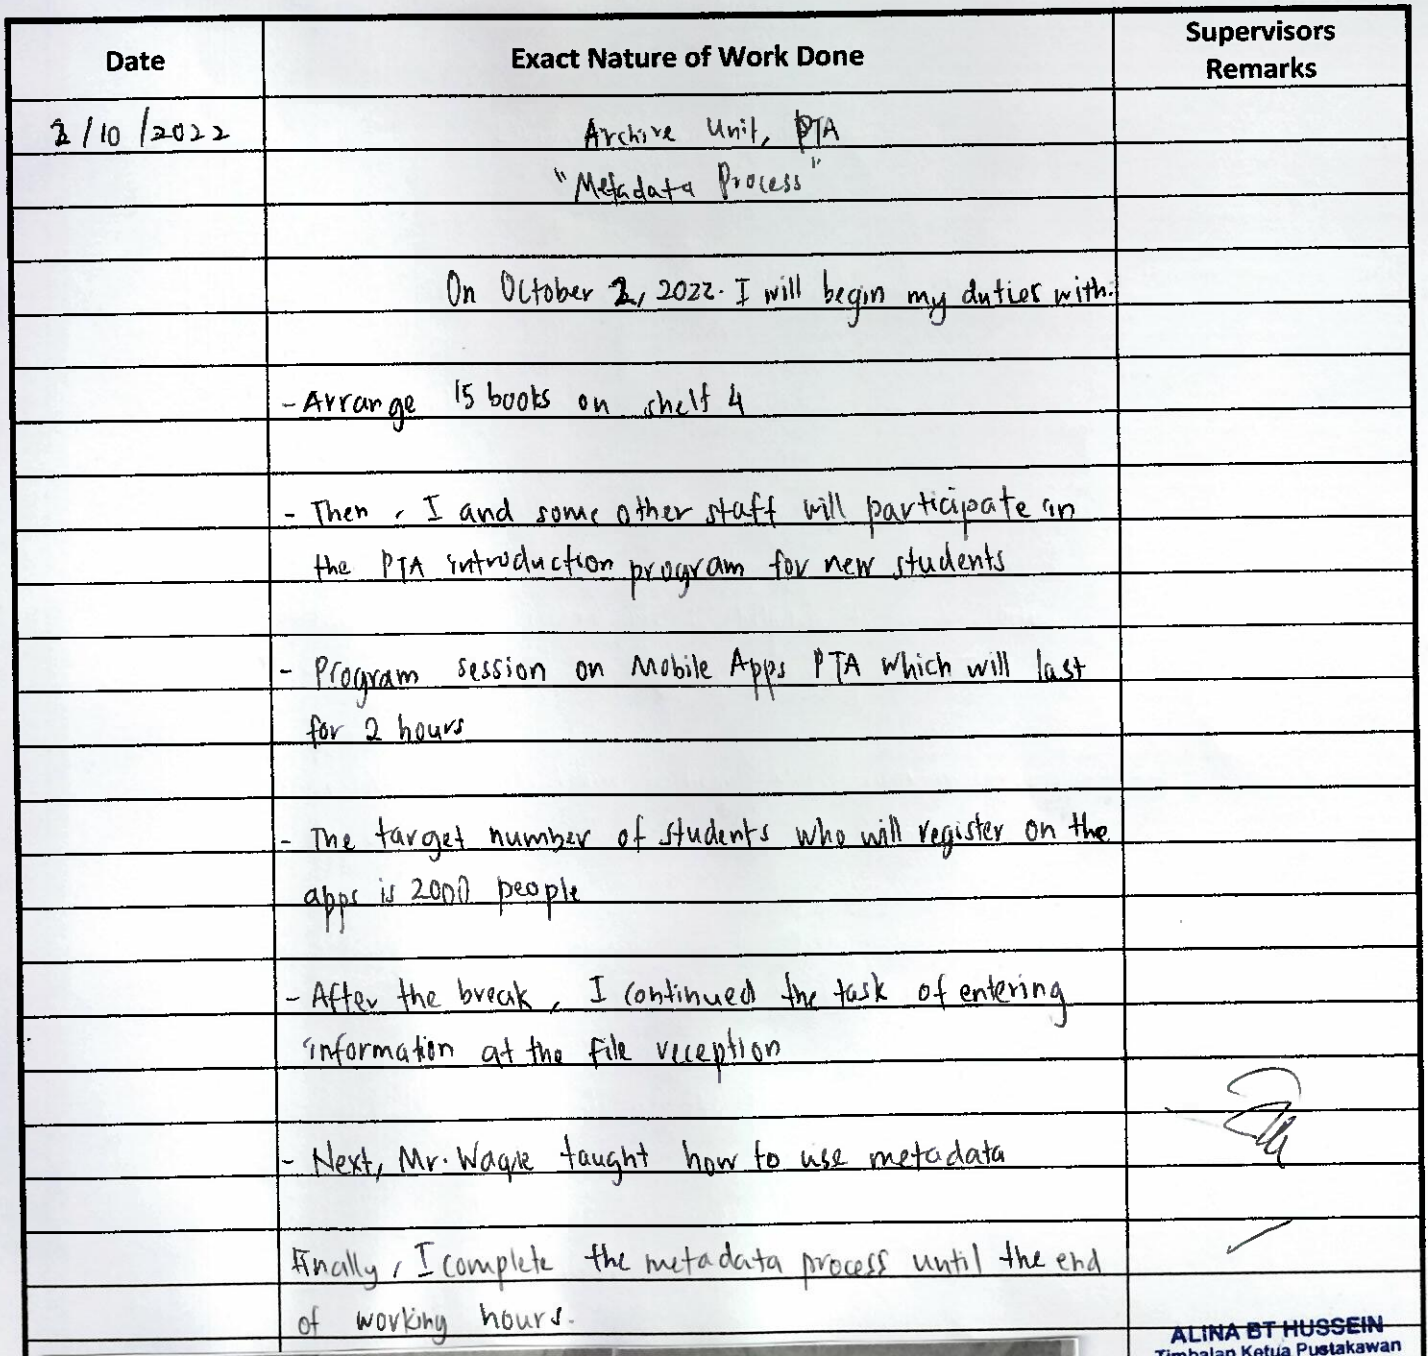 Date
Exact Nature of Work Done
Supervisors
Remarks
2/10/2022
Archive Unit, PTA
"Metadata Process"
On October 2, 2022. I will begin my duties with.
- Arrange 15 books on shelf 4
- Then, I and some other staff will participate in
the PTA introduction program for new students
- Program session on Mobile Apps PTA which will last
for 2 hours
- The target number of students who will register on the
apps is 2000 people
- After the break, I continued the task of entering
information at the file reception
- Next, Mr. taught how to use metadata
Finally, I complete the metadata process until the end
of working hours.
ALINA BT HUSSEIN
Timbalan Ketua Pustakawan